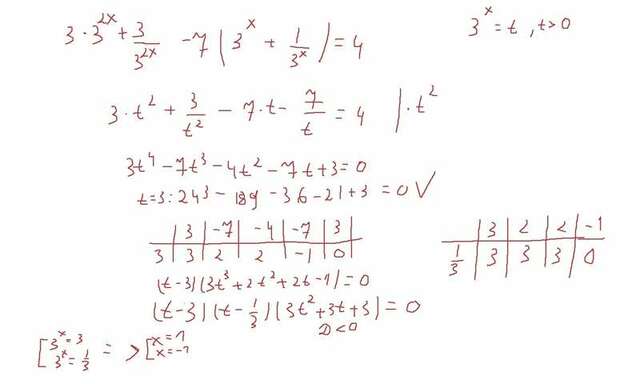 3 · 3^{2x} + \frac{3}{3^{2x}} - 7 ( 3^x + \frac{1}{3^x} ) = 4
3^x = t , t > 0
3 · t^2 + \frac{3}{t^2} - 7 · t - \frac{7}{t} = 4 | · t^2
3t^4 - 7t^3 - 4t^2 - 7t + 3 = 0
t = 3 : 243 - 189 - 36 - 21 + 3 = 0 ✓
| 3 | -7 | -4 | -7 | 3 |
3 | 3 | 2 | 2 | -1 | 0 |
| 3 | 2 | 2 | -1
\frac{1}{3} | 3 | 3 | 3 | 0
(t-3)(3t^3 + 2t^2 + 2t - 1) = 0
(t-3)(t - \frac{1}{3})(3t^2 + 3t + 3) = 0
D < 0
[ 3^x = 3 => [ x = 1
3^x = \frac{1}{3} x = -1